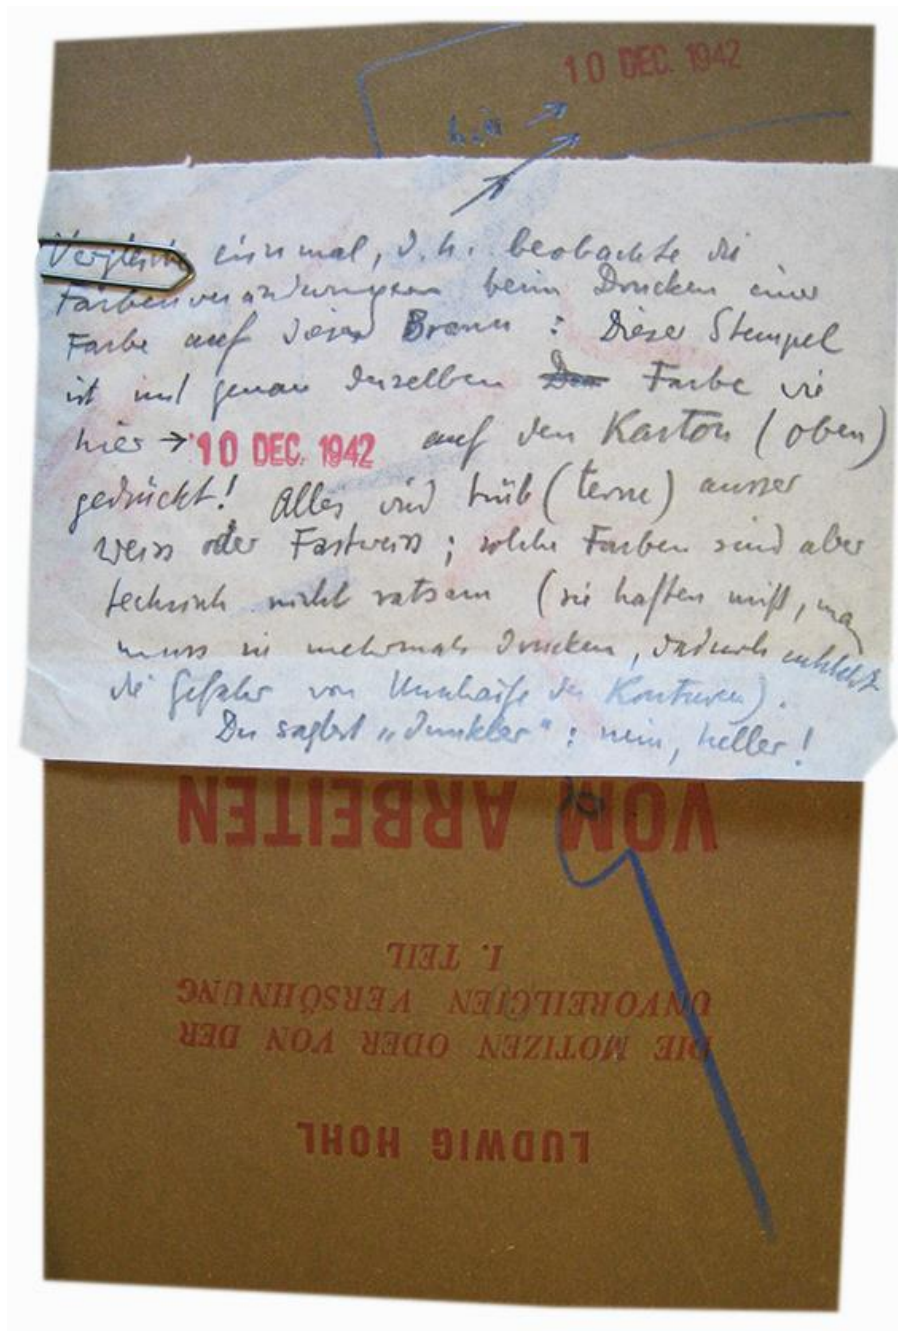 10 DEC. 1942
Vergleiche einmal, d.h. beobachte die
Farbenveränderungen beim Drucken einer
Farbe auf dieses Braun : Dieser Stempel
ist mit genau derselben Farbe wie
hier → 10 DEC. 1942 auf den Karton (oben)
gedrückt! Alles wird trüb (terne) ausser
weiss oder Fastweiss ; solche Farben sind aber
technisch nicht ratsam (sie haften nicht, man
muss sie mehrmals drucken, dadurch entsteht
die Gefahr von Unschärfe der Konturen).
Du sagtest „dunkler“ : nein, heller!
VOM ARBEITEN
I. TEIL
UNVOREILIGEN VERSÖHNUNG
DIE NOTIZEN ODER VON DER
LUDWIG HOHL